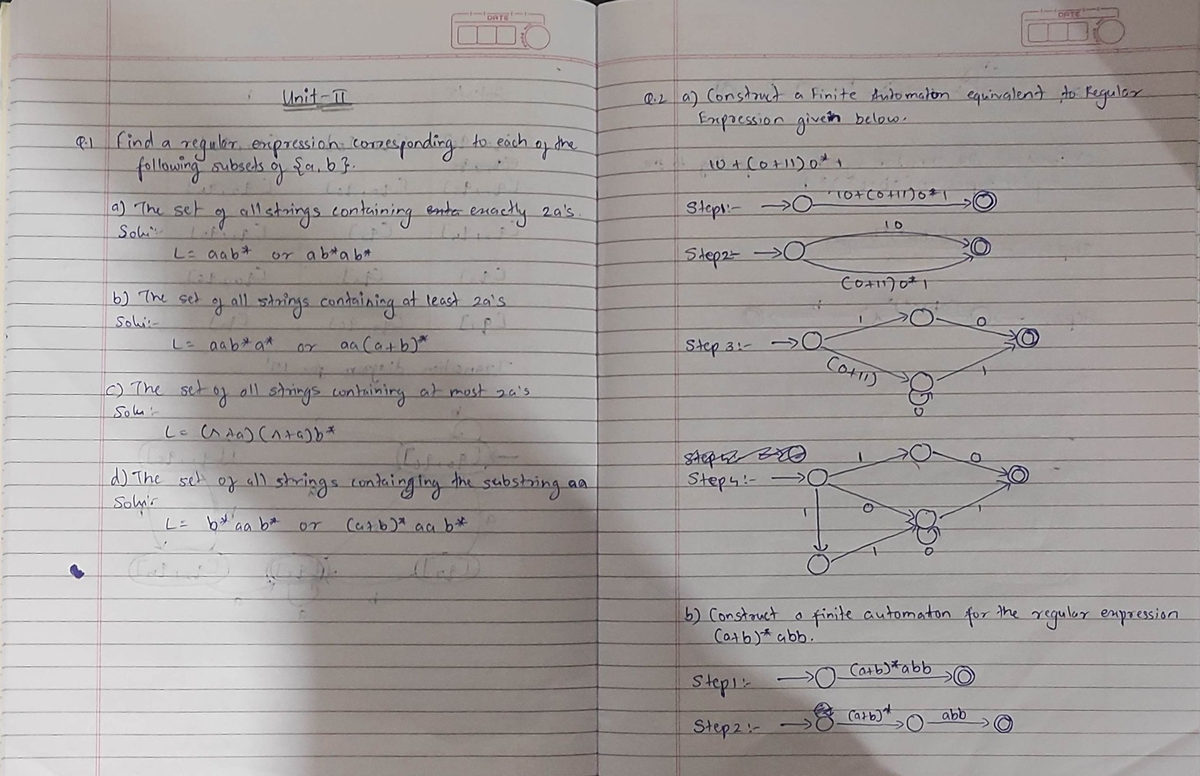 DATE
Unit-II
Q.1 Find a regular expression corresponding to each of the
following subsets of {a, b}.
a) The set of all strings containing exactly 2a's.
Soln:-
L = aab* or ab*ab*
b) The set of all strings containing at least 2a's
Soln:-
L = aab*a* or aa(a+b)*
c) The set of all strings containing at most 2a's
Soln:-
L = (^+a)(^+a)b*
d) The set of all strings containging the substring aa
Soln:-
L = b*aab* or (a+b)* aa b*
DATE
Q.2 a) Construct a Finite Automaton equivalent to Regular
Expression given below.
10+(0+11)0*1
Step1:- 10+(0+11)0*1
Step2:- 10
(0+11)0*1
Step 3:- 1 0
(0+11) 1
0
Step4:- 1 0
1 0 1
1 0
b) Construct a finite automaton for the regular expression
(a+b)* abb.
Step1:- (a+b)*abb
Step2:- (a+b)* abb